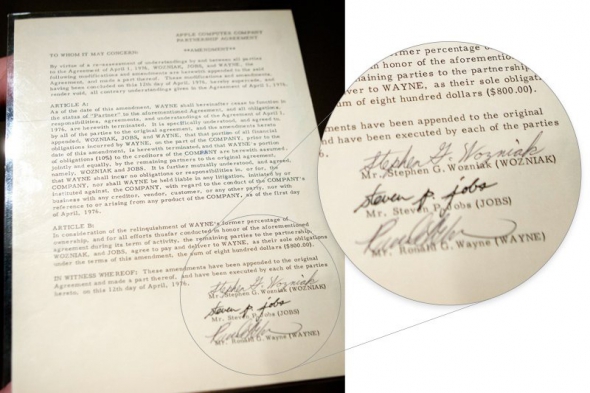 APPLE COMPUTER COMPANY
PARTNERSHIP AGREEMENT
TO WHOM IT MAY CONCERN:
**AMENDMENT**
By virtue of a re-assessment of understandings by and between all parties
to the Agreement of April 1, 1976, WOZNIAK, JOBS, and WAYNE, the
following modifications and amendments are herewith appended to the said
Agreement, and made a part thereof. These modifications and amendments,
having been concluded on this 12th day of April, 1976, hereby supercede, and
render void, all contrary understandings given in the Agreement of April 1, 1976.
ARTICLE A:
As of the date of this amendment, WAYNE shall hereinafter cease to function in
the status of "Partner" to the aforementioned Agreement, and all obligations,
responsibilities, agreements, and understandings of the Agreement of April 1,
1976, are herewith terminated. It is specifically understood, and agreed to
by all of the parties to the original agreement, and the amendments hereto
appended, WOZNIAK, JOBS, and WAYNE, that that portion of all financial
obligations incurred by WAYNE, on the part of the COMPANY, prior to the
date of this amendment, is herewith terminated, and that WAYNE's portion
of obligations (10%) to the creditors of the COMPANY are herewith assumed,
jointly and equally, by the remaining partners to the original agreement,
namely, WOZNIAK and JOBS. It is further mutually understood, and agreed,
that WAYNE shall incur no obligations or responsibilities in, or for, the
COMPANY, nor shall WAYNE be held liable in any litigation, initiated by or
instituted against, the COMPANY, with regard to the conduct of the COMPANY's
business with any creditor, vendor, customer, or any other party, nor with
reference to or arising from any product of the COMPANY, as of the first day
of April, 1976.
ARTICLE B:
In consideration of the relinquishment of WAYNE's former percentage of
ownership, and for all efforts thusfar conducted in honor of the aforementioned
agreement during its term of activity, the remaining parties to the partnership,
WOZNIAK, and JOBS, agree to pay and deliver to WAYNE, as their sole obligations
under the terms of this amendment, the sum of eight hundred dollars ($800.00).
IN WITNESS WHEREOF: These amendments have been appended to the original
Agreement and made a part thereof, and have been executed by each of the parties
hereto, on this 12th day of April, 1976.
Stephen G. Wozniak
Mr. Stephen G. Wozniak (WOZNIAK)
steven p. jobs
Mr. Steven P. Jobs (JOBS)
Mr. Ronald G. Wayne (WAYNE)
rmer percentage o
honor of the aforemention
maining parties to the partnership
iver to WAYNE, as their sole obligat
um of eight hundred dollars ($800.00).
ments have been appended to the original
nd have been executed by each of the parties
6.
Stephen G. Wozniak
Mr. Stephen G. Wozniak (WOZNIAK)
steven p. jobs
Mr. Steven P. Jobs (JOBS)
Mr. Ronald G. Wayne (WAYNE)